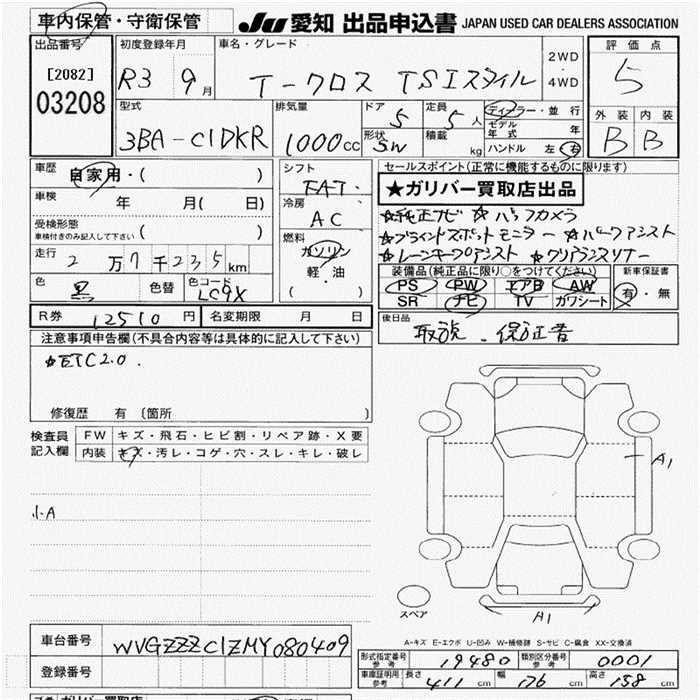 車内保管・守衛保管 JU 愛知 出品申込書 JAPAN USED CAR DEALERS ASSOCIATION
出品番号 初度登録年月 車名・グレード 評価点
[2082] R3 9月 T-クロス TSIスタイル 2WD・4WD 5
03208
型式 排気量 ドア 5 定員 5人 ディーラー・並行 外装 内装
3BA-C1DKR 1000cc 形状 SW 積載 kg モデル年式 年 B B
ハンドル 左・右
車歴 自家用・( ) シフト FAT セールスポイント(正常に機能するものに限ります)
★ガリバー買取店出品
車検 年 月( 日) 冷房 AC
☆純正ナビ ☆バックカメラ
受検形態 車検付きのみ記入して下さい ( )
☆ブラインドスポットモニター ☆パークアシスト
走行 2万7千235km 燃料 ガソリン 軽・油 ( )
☆レーンキープアシスト ☆クリアランスソナー
色 黒 色替 色コード LC9X
装備品(純正品に限り○をつけてください) 新車保証書
PS PW エアB AW 有・無
SR ナビ TV カワシート
R券 12510円 名変期限 月 日
後日品 取説・保証書
注意事項申告欄(不具合内容等は具体的に記入して下さい)
☆ETC2.0.
修復歴 有 〔箇所 〕
検査員記入欄 FW キズ・飛石・ヒビ割・リペア跡・X要
内装 キズ・汚レ・コゲ・穴・スレ・キレ・破レ
A1
小A
スペア
A1
A-キズ E-エクボ U-凹み W-補修跡 S-サビ C-腐食 XX-交換済
車台番号 WVGZZZC1ZMY080409
登録番号
形式指定番号 参考 19480 類別区分番号 参考 0001
車庫証明用 参考 長さ 411cm 幅 176cm 高さ 158cm
ガリバー買取店